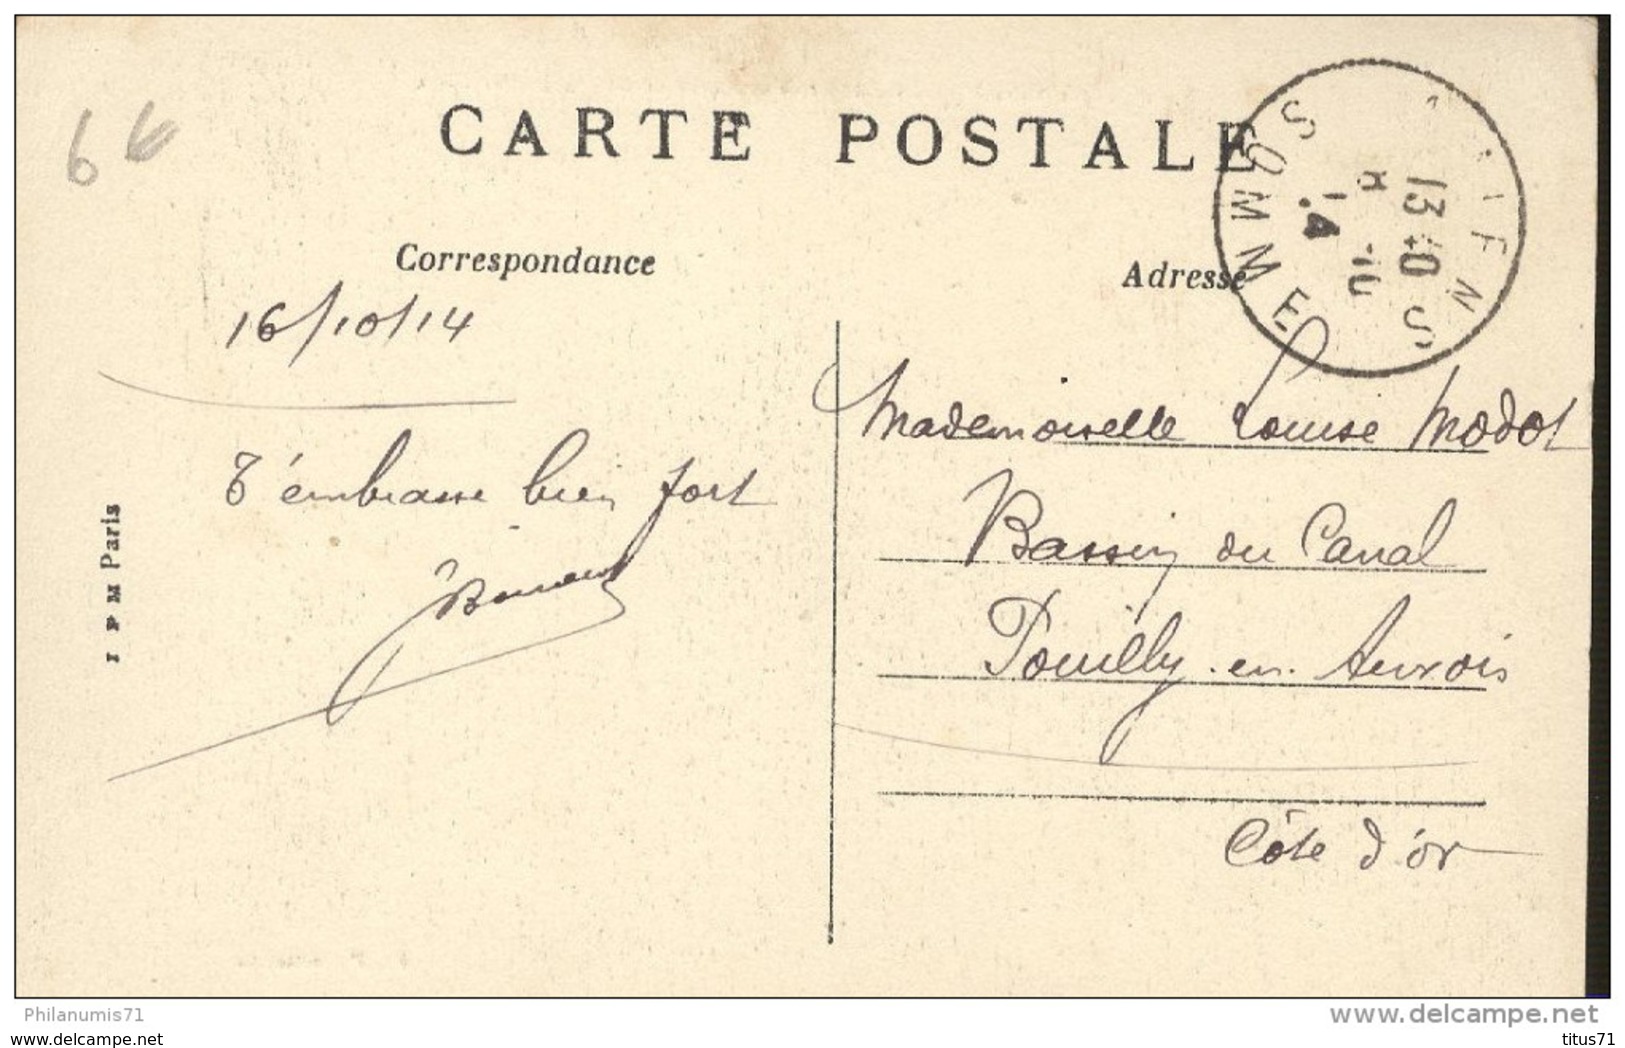 66
CARTE POSTALE
Correspondance
Adresse
SOMME
13 40
16/10/14
T'embrasse bien fort
Mademoiselle Louise Modot
Bassin du Canal
Pouilly-en-Auxois
Côte d'or
I P M Paris
Philanumis71
www.delcampe.net
www.delcampe.net
titus71